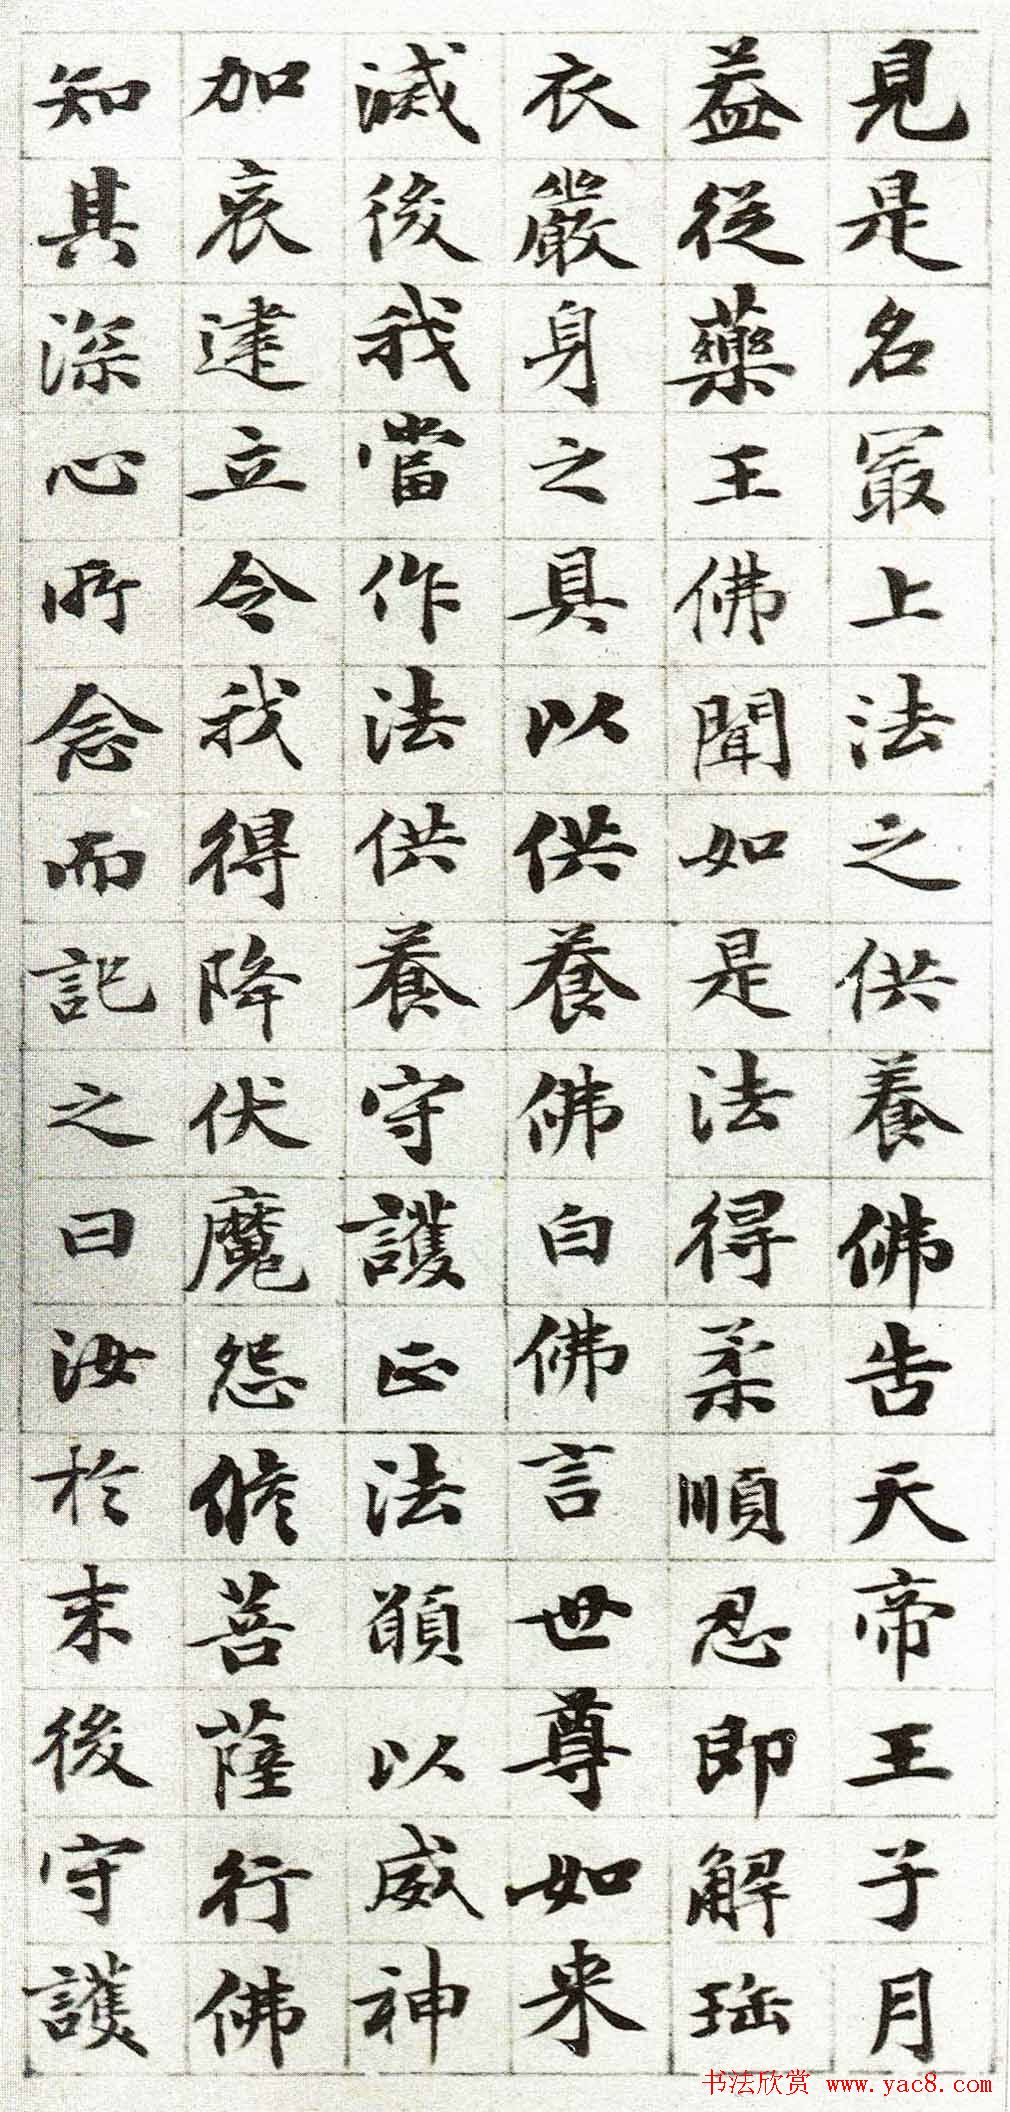 見是名冣上法之供養佛告天帝王子月
盖從藥王佛聞如是法得柔順忍即解瑶
衣嚴身之具以供養佛白佛言世尊如来
滅後我當作法供養守護正法願以威神
加哀建立令我得降伏魔怨脩菩薩行佛
知其深心所念而記之曰汝於末後守護
书法欣赏 www.yac8.com